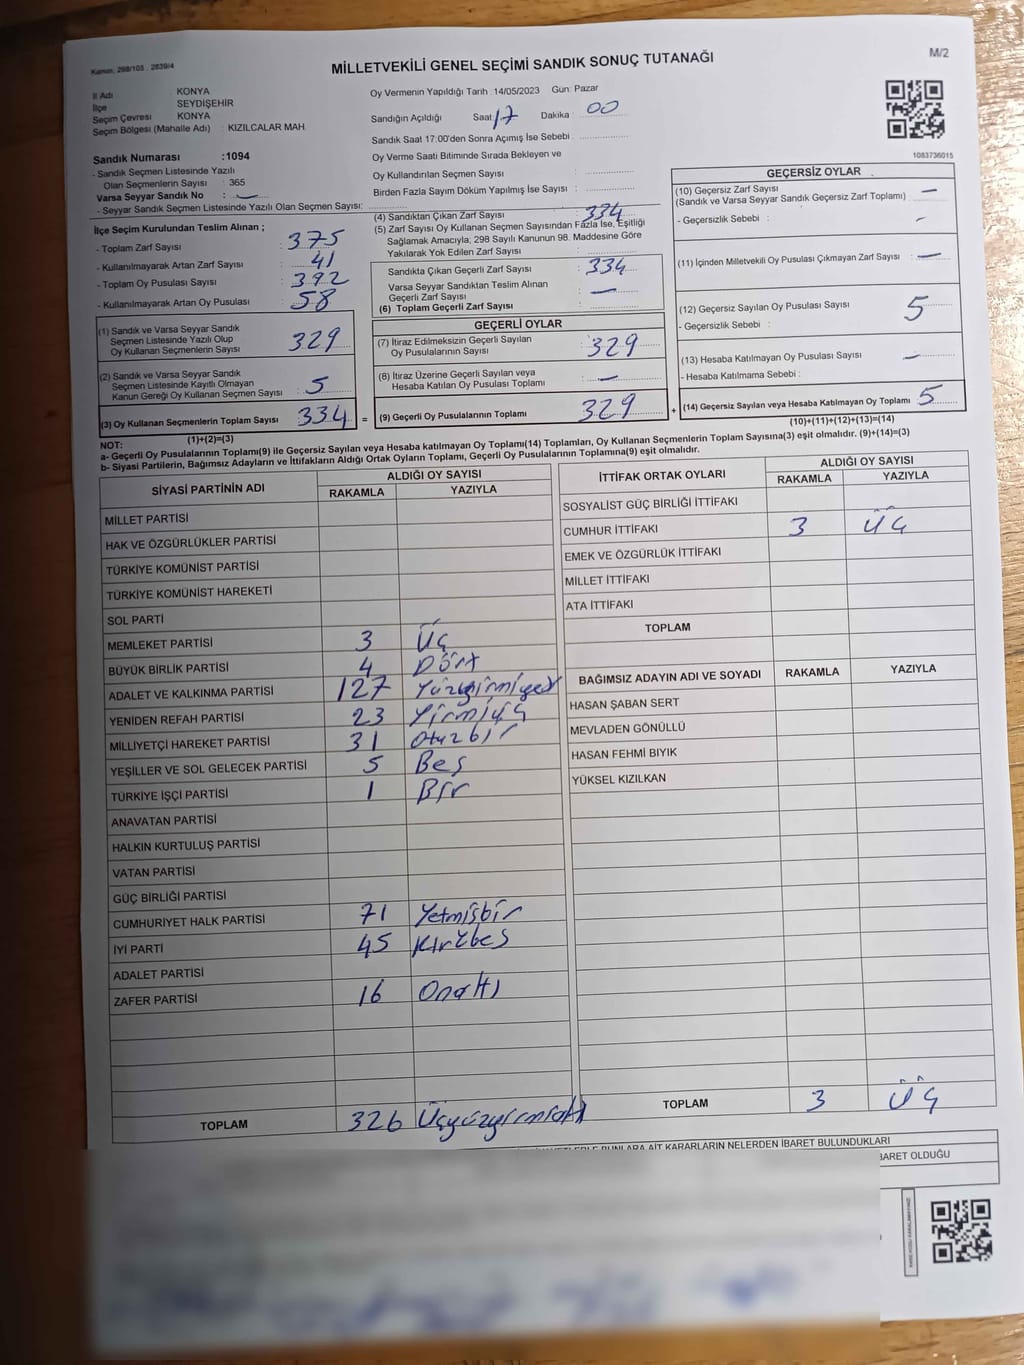 Kanun, 298/105 . 2839/4
MİLLETVEKİLİ GENEL SEÇİMİ SANDIK SONUÇ TUTANAĞI
M/2
İl Adı : KONYA
İlçe : SEYDİŞEHİR
Seçim Çevresi : KONYA
Seçim Bölgesi (Mahalle Adı) : KIZILCALAR MAH.
Oy Vermenin Yapıldığı Tarih :14/05/2023 Gün: Pazar
Sandığın Açıldığı Saat: 17 Dakika : 00
Sandık Saat 17:00'den Sonra Açımış İse Sebebi :
Oy Verme Saati Bitiminde Sırada Bekleyen ve
Oy Kullandırılan Seçmen Sayısı :
Birden Fazla Sayım Döküm Yapılmış İse Sayısı :
1083736015
Sandık Numarası :1094
- Sandık Seçmen Listesinde Yazılı
Olan Seçmenlerin Sayısı : 365
Varsa Seyyar Sandık No : —
- Seyyar Sandık Seçmen Listesinde Yazılı Olan Seçmen Sayısı:
İlçe Seçim Kurulundan Teslim Alınan ;
- Toplam Zarf Sayısı : 375
- Kullanılmayarak Artan Zarf Sayısı : 41
- Toplam Oy Pusulası Sayısı : 392
- Kullanılmayarak Artan Oy Pusulası : 58
(1) Sandık ve Varsa Seyyar Sandık
Seçmen Listesinde Yazılı Olup
Oy Kullanan Seçmenlerin Sayısı : 329
(2) Sandık ve Varsa Seyyar Sandık
Seçmen Listesinde Kayıtlı Olmayan
Kanun Gereği Oy Kullanan Seçmen Sayısı : 5
(3) Oy Kullanan Seçmenlerin Toplam Sayısı : 334 =
(1)+(2)=(3)
(4) Sandıktan Çıkan Zarf Sayısı : 334
(5) Zarf Sayısı Oy Kullanan Seçmen Sayısından Fazla İse, Eşitliği
Sağlamak Amacıyla; 298 Sayılı Kanunun 98. Maddesine Göre
Yakılarak Yok Edilen Zarf Sayısı :
Sandıkta Çıkan Geçerli Zarf Sayısı : 334
Varsa Seyyar Sandıktan Teslim Alınan
Geçerli Zarf Sayısı : —
(6) Toplam Geçerli Zarf Sayısı :
GEÇERLİ OYLAR
(7) İtiraz Edilmeksizin Geçerli Sayılan
Oy Pusulalarının Sayısı : 329
(8) İtiraz Üzerine Geçerli Sayılan veya
Hesaba Katılan Oy Pusulası Toplamı : —
(9) Geçerli Oy Pusulalarının Toplamı : 329 +
GEÇERSİZ OYLAR
(10) Geçersiz Zarf Sayısı : —
(Sandık ve Varsa Seyyar Sandık Geçersiz Zarf Toplamı)
- Geçersizlik Sebebi : —
(11) İçinden Milletvekili Oy Pusulası Çıkmayan Zarf Sayısı : —
(12) Geçersiz Sayılan Oy Pusulası Sayısı : 5
- Geçersizlik Sebebi :
(13) Hesaba Katılmayan Oy Pusulası Sayısı : —
- Hesaba Katılmama Sebebi :
(14) Geçersiz Sayılan veya Hesaba Katılmayan Oy Toplamı : 5
(10)+(11)+(12)+(13)=(14)
NOT:
a- Geçerli Oy Pusulalarının Toplamı(9) ile Geçersiz Sayılan veya Hesaba katılmayan Oy Toplamı(14) Toplamları, Oy Kullanan Seçmenlerin Toplam Sayısına(3) eşit olmalıdır. (9)+(14)=(3)
b- Siyasi Partilerin, Bağımsız Adayların ve İttifakların Aldığı Ortak Oyların Toplamı, Geçerli Oy Pusulalarının Toplamına(9) eşit olmalıdır.
SİYASİ PARTİNİN ADI ALDIĞI OY SAYISI
RAKAMLA YAZIYLA
MİLLET PARTİSİ
HAK VE ÖZGÜRLÜKLER PARTİSİ
TÜRKİYE KOMÜNİST PARTİSİ
TÜRKİYE KOMÜNİST HAREKETİ
SOL PARTİ
MEMLEKET PARTİSİ 3 Üç
BÜYÜK BİRLİK PARTİSİ 4 Dört
ADALET VE KALKINMA PARTİSİ 127 Yüzyirmiyedi
YENİDEN REFAH PARTİSİ 23 Yirmiüç
MİLLİYETÇİ HAREKET PARTİSİ 31 Otuzbir
YEŞİLLER VE SOL GELECEK PARTİSİ 5 Beş
TÜRKİYE İŞÇİ PARTİSİ 1 Bir
ANAVATAN PARTİSİ
HALKIN KURTULUŞ PARTİSİ
VATAN PARTİSİ
GÜÇ BİRLİĞİ PARTİSİ
CUMHURİYET HALK PARTİSİ 71 Yetmişbir
İYİ PARTİ 45 Kırkbeş
ADALET PARTİSİ
ZAFER PARTİSİ 16 Onaltı
TOPLAM 326 Üçyüzyirmialtı
İTTİFAK ORTAK OYLARI ALDIĞI OY SAYISI
RAKAMLA YAZIYLA
SOSYALİST GÜÇ BİRLİĞİ İTTİFAKI
CUMHUR İTTİFAKI 3 Üç
EMEK VE ÖZGÜRLÜK İTTİFAKI
MİLLET İTTİFAKI
ATA İTTİFAKI
TOPLAM
BAĞIMSIZ ADAYIN ADI VE SOYADI RAKAMLA YAZIYLA
HASAN ŞABAN SERT
MEVLADEN GÖNÜLLÜ
HASAN FEHMİ BIYIK
YÜKSEL KIZILKAN
TOPLAM 3 Üç
BUNLARA AİT KARARLARIN NELERDEN İBARET BULUNDUKLARI
İBARET OLDUĞU